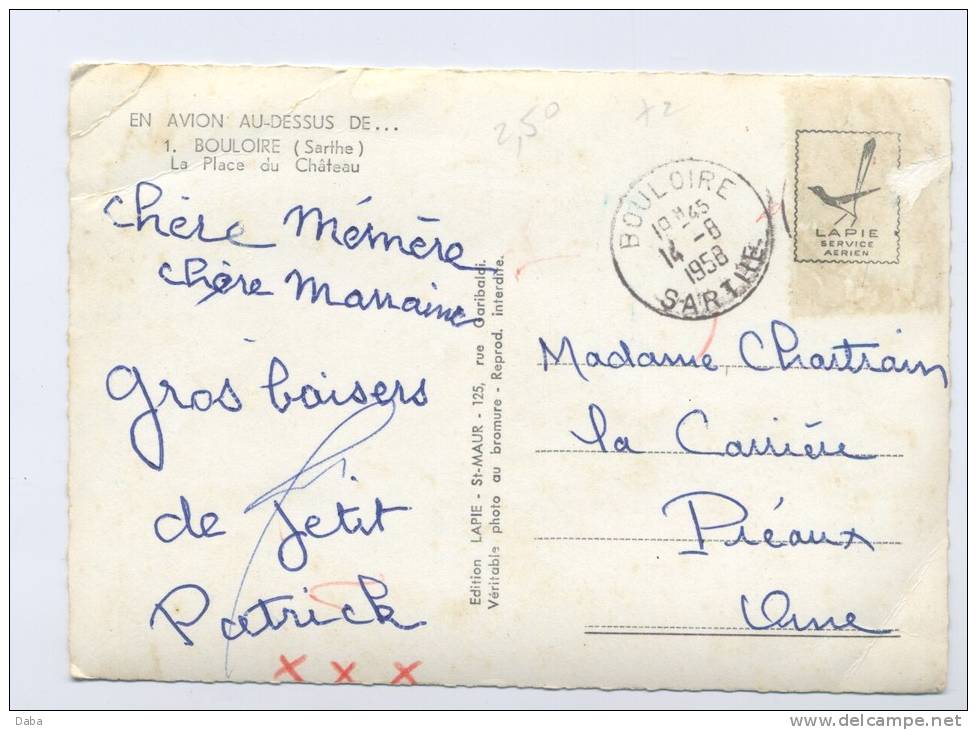 EN AVION AU-DESSUS DE...
1. BOULOIRE (Sarthe)
La Place du Château
chère Mémère
chère Marraine
gros baisers
de Petit
Patrick
x x x
Edition LAPIE - St-MAUR - 125, rue Garibaldi.
Véritable photo au bromure - Reprod. interdite.
2,50
x2
BOULOIRE
18H45
14-8
1958
SARTHE
LAPIE
SERVICE
AERIEN
Madame Chartrain
la Carrière
Préaux
Orne
Daba
www.delcampe.net